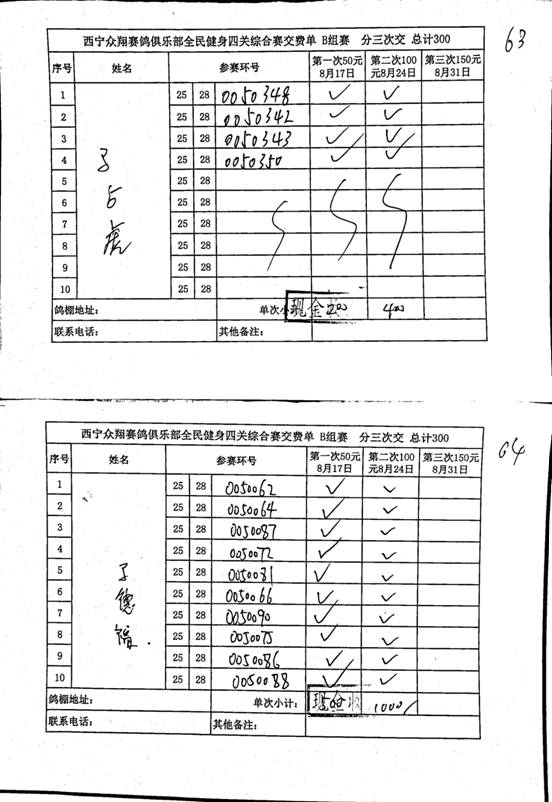 63
西宁众翔赛鸽俱乐部全民健身四关综合赛交费单 B组赛 分三次交 总计300
序号 姓名 参赛环号 第一次50元 8月17日 第二次100元8月24日 第三次150元 8月31日
1 25 28 0050348 ✓ ✓
2 25 28 0050342 ✓ ✓
3 25 28 0050343 ✓ ✓
4 25 28 0050350 ✓ ✓
5 25 28
6 25 28
7 25 28
8 25 28
9 25 28
10 25 28
占虎
鸽棚地址: 单次小 现金 200 400
联系电话: 其他备注:
64
西宁众翔赛鸽俱乐部全民健身四关综合赛交费单 B组赛 分三次交 总计300
序号 姓名 参赛环号 第一次50元 8月17日 第二次100元8月24日 第三次150元 8月31日
1 25 28 0050062 ✓ ✓
2 25 28 0050064 ✓ ✓
3 25 28 0050087 ✓ ✓
4 25 28 0050072 ✓ ✓
5 25 28 0050081 ✓ ✓
6 25 28 0050066 ✓ ✓
7 25 28 0050090 ✓ ✓
8 25 28 0050075 ✓ ✓
9 25 28 0050086 ✓ ✓
10 25 28 0050088 ✓ ✓
德福
鸽棚地址: 单次小计: 现金收 500 1000/
联系电话: 其他备注: